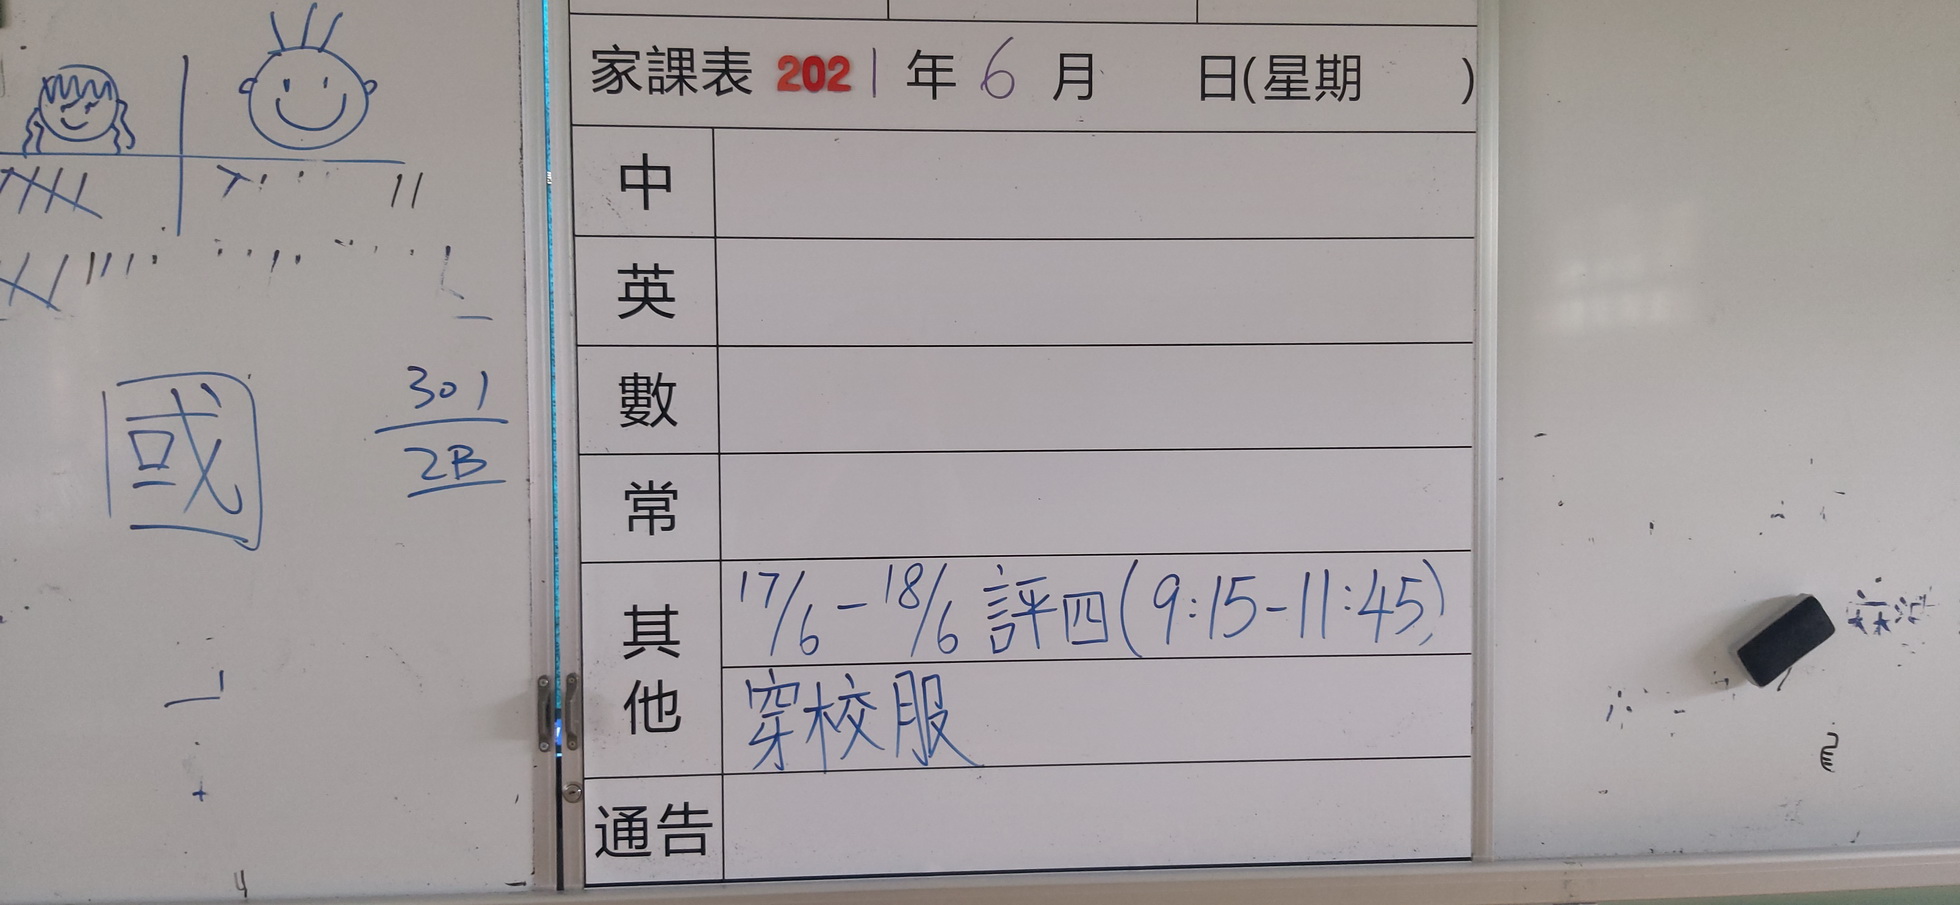 國
301
2B
家課表 2021年6月 日(星期 )
中
英
數
常
其他
17/6-18/6 評四(9:15-11:45)
穿校服
通告